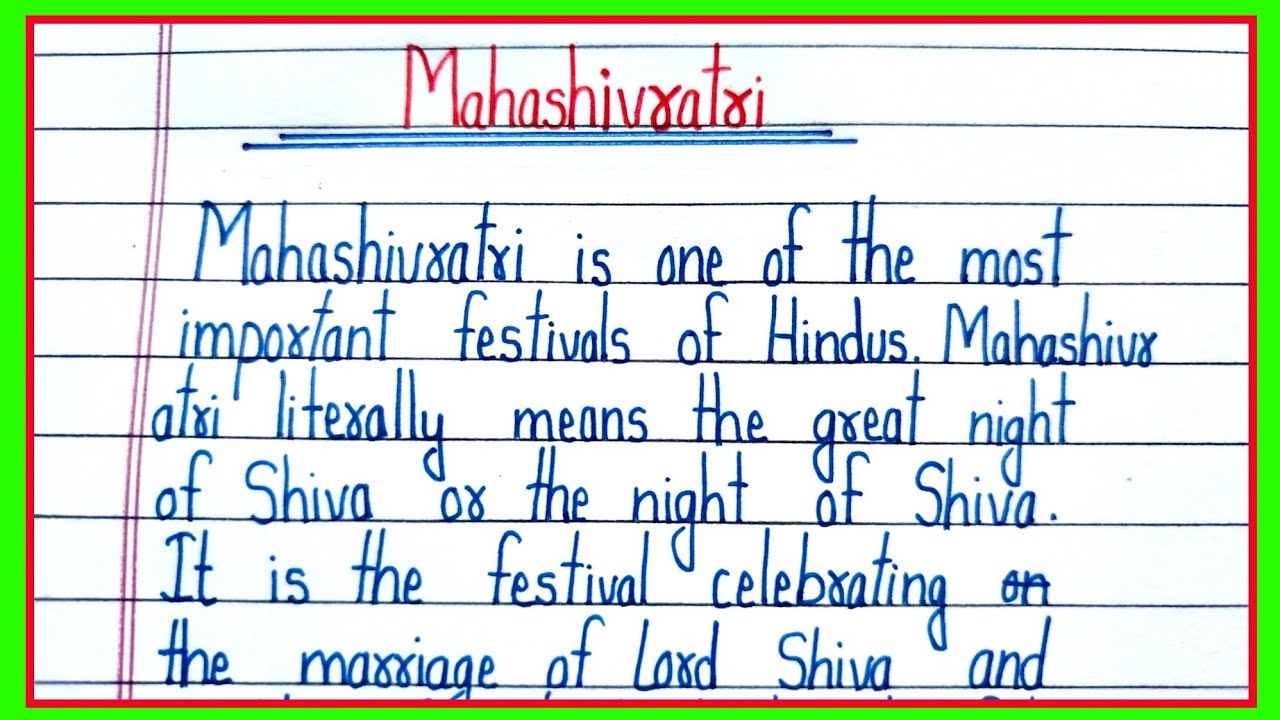 Mahashivratri
Mahashivratri is one of the most
important festivals of Hindus. Mahashivr
atri literally means the great night
of Shiva or the night of Shiva.
It is the festival celebrating on
the marriage of Lord Shiva and